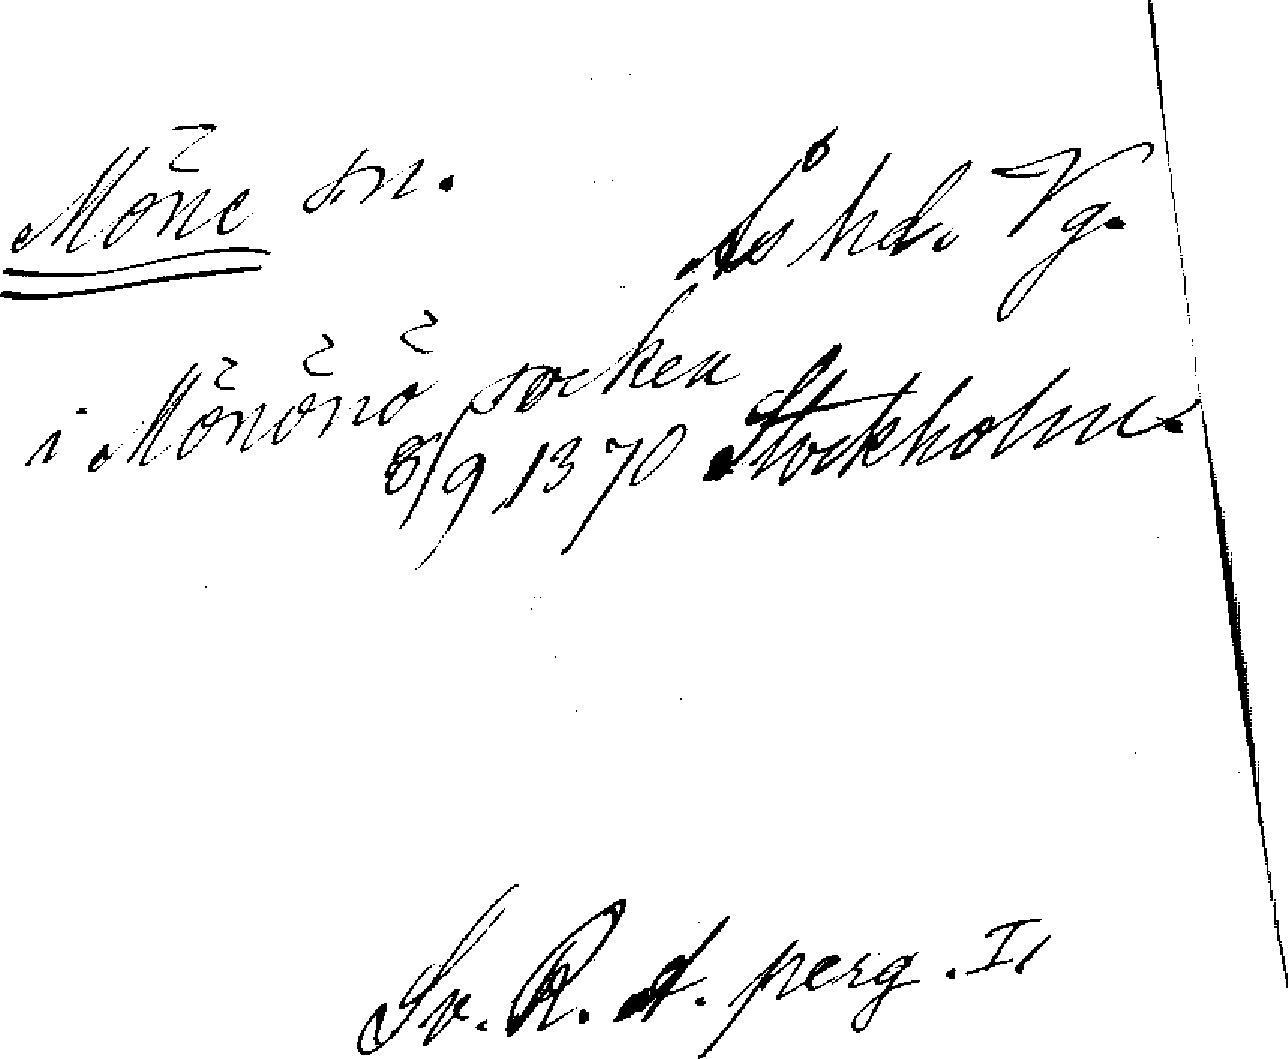 Möne sn. Ås hd. Vg.
i Mönönö socken
8/9 1370 Stockholm.
Sv. R. A. perg. I.